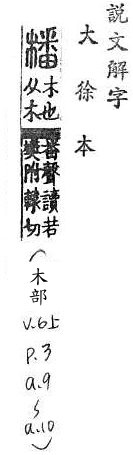 說文解字
大徐本
橎
木也
从木
番聲讀若
樊附轅切
(木部
v.6上
P.3
a.9
~
a.10)